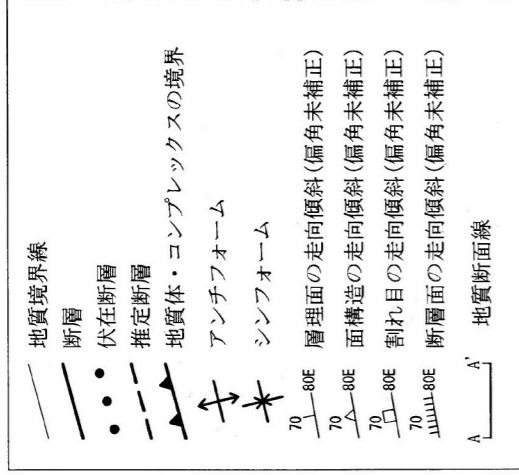 地質境界線
断層
伏在断層
推定断層
地質体・コンプレックスの境界
アンチフォーム
シンフォーム
70 80E 層理面の走向傾斜(偏角未補正)
70 80E 面構造の走向傾斜(偏角未補正)
70 80E 割れ目の走向傾斜(偏角未補正)
70 80E 断層面の走向傾斜(偏角未補正)
A A' 地質断面線